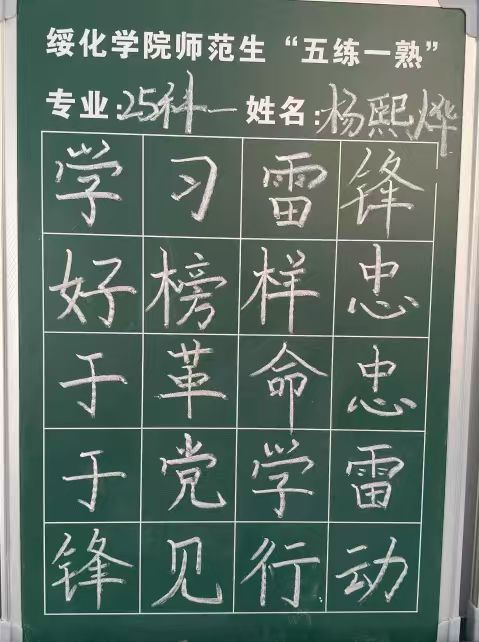 绥化学院师范生“五练一熟”
专业:25科一 姓名:杨熙烨
学习雷锋
好榜样忠
于革命忠
于党学雷
锋见行动